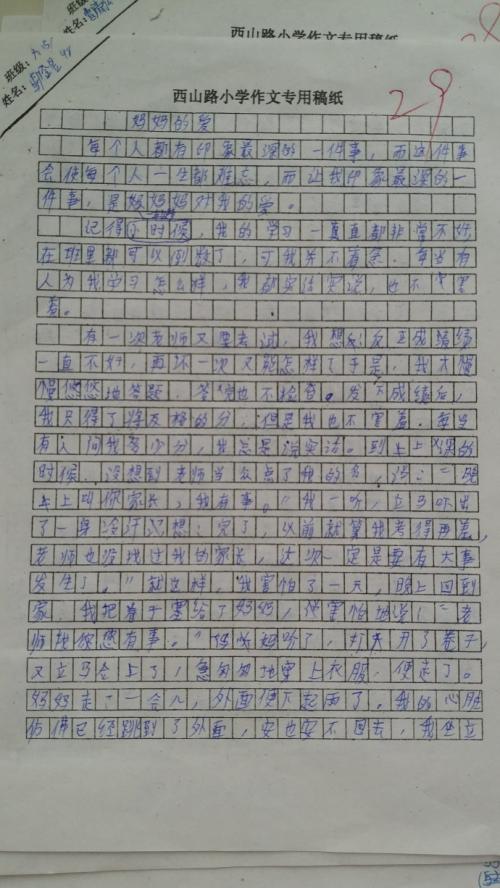 西山路小学作文专用稿纸
班级:
姓名:
西山路小学作文专用稿纸
29
班级:
姓名:
妈妈的爱
每个人都有印象最深的一件事,而这件事
会使每个人一生都难忘,而让我印象最深的一
件事,是妈妈对我的爱。
记得小时候,我的学习一直都非常不好,
在班里都可以倒数了,可我并不着急。每当有
人为我学习怎么样,我都实话实说,也不害
羞。
有一次老师又要考试,我想:反正成绩
一直不好,再坏一次又能怎样了于是,我不慌
慢悠悠地答题,答完也不检查。发下成绩后,
我只得了将及格的分,但是我也不害羞。每当
有人问我多少分,我总是说实话。到上上课的
时候,没想到老师当众点了我的名,说:“晚
上叫你家长,我有事。”我一听,立马吓出
了一身冷汗,想:完了,以前就算我考得再差,
老师也没找过我的家长,这次一定是要有大事
发生了。”就这样,我害怕了一天,晚上回到
家,我把卷子拿给了妈妈,害怕地说:“老
师找你有事。”妈妈听了,打开了卷子,
又立马合上了,急匆匆地穿上衣服,便走了。
妈妈走了一会儿,外面便下起雨了。我的心脏
仿佛已经跳到了外面,安也安不回去,我坐立